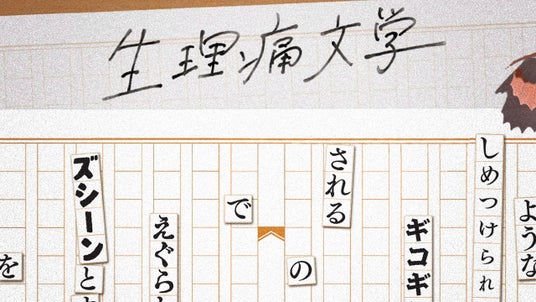 生理痛文学
ような
しめつけられ
ギコギ
される
の
で
えぐら
ズシーンと
を